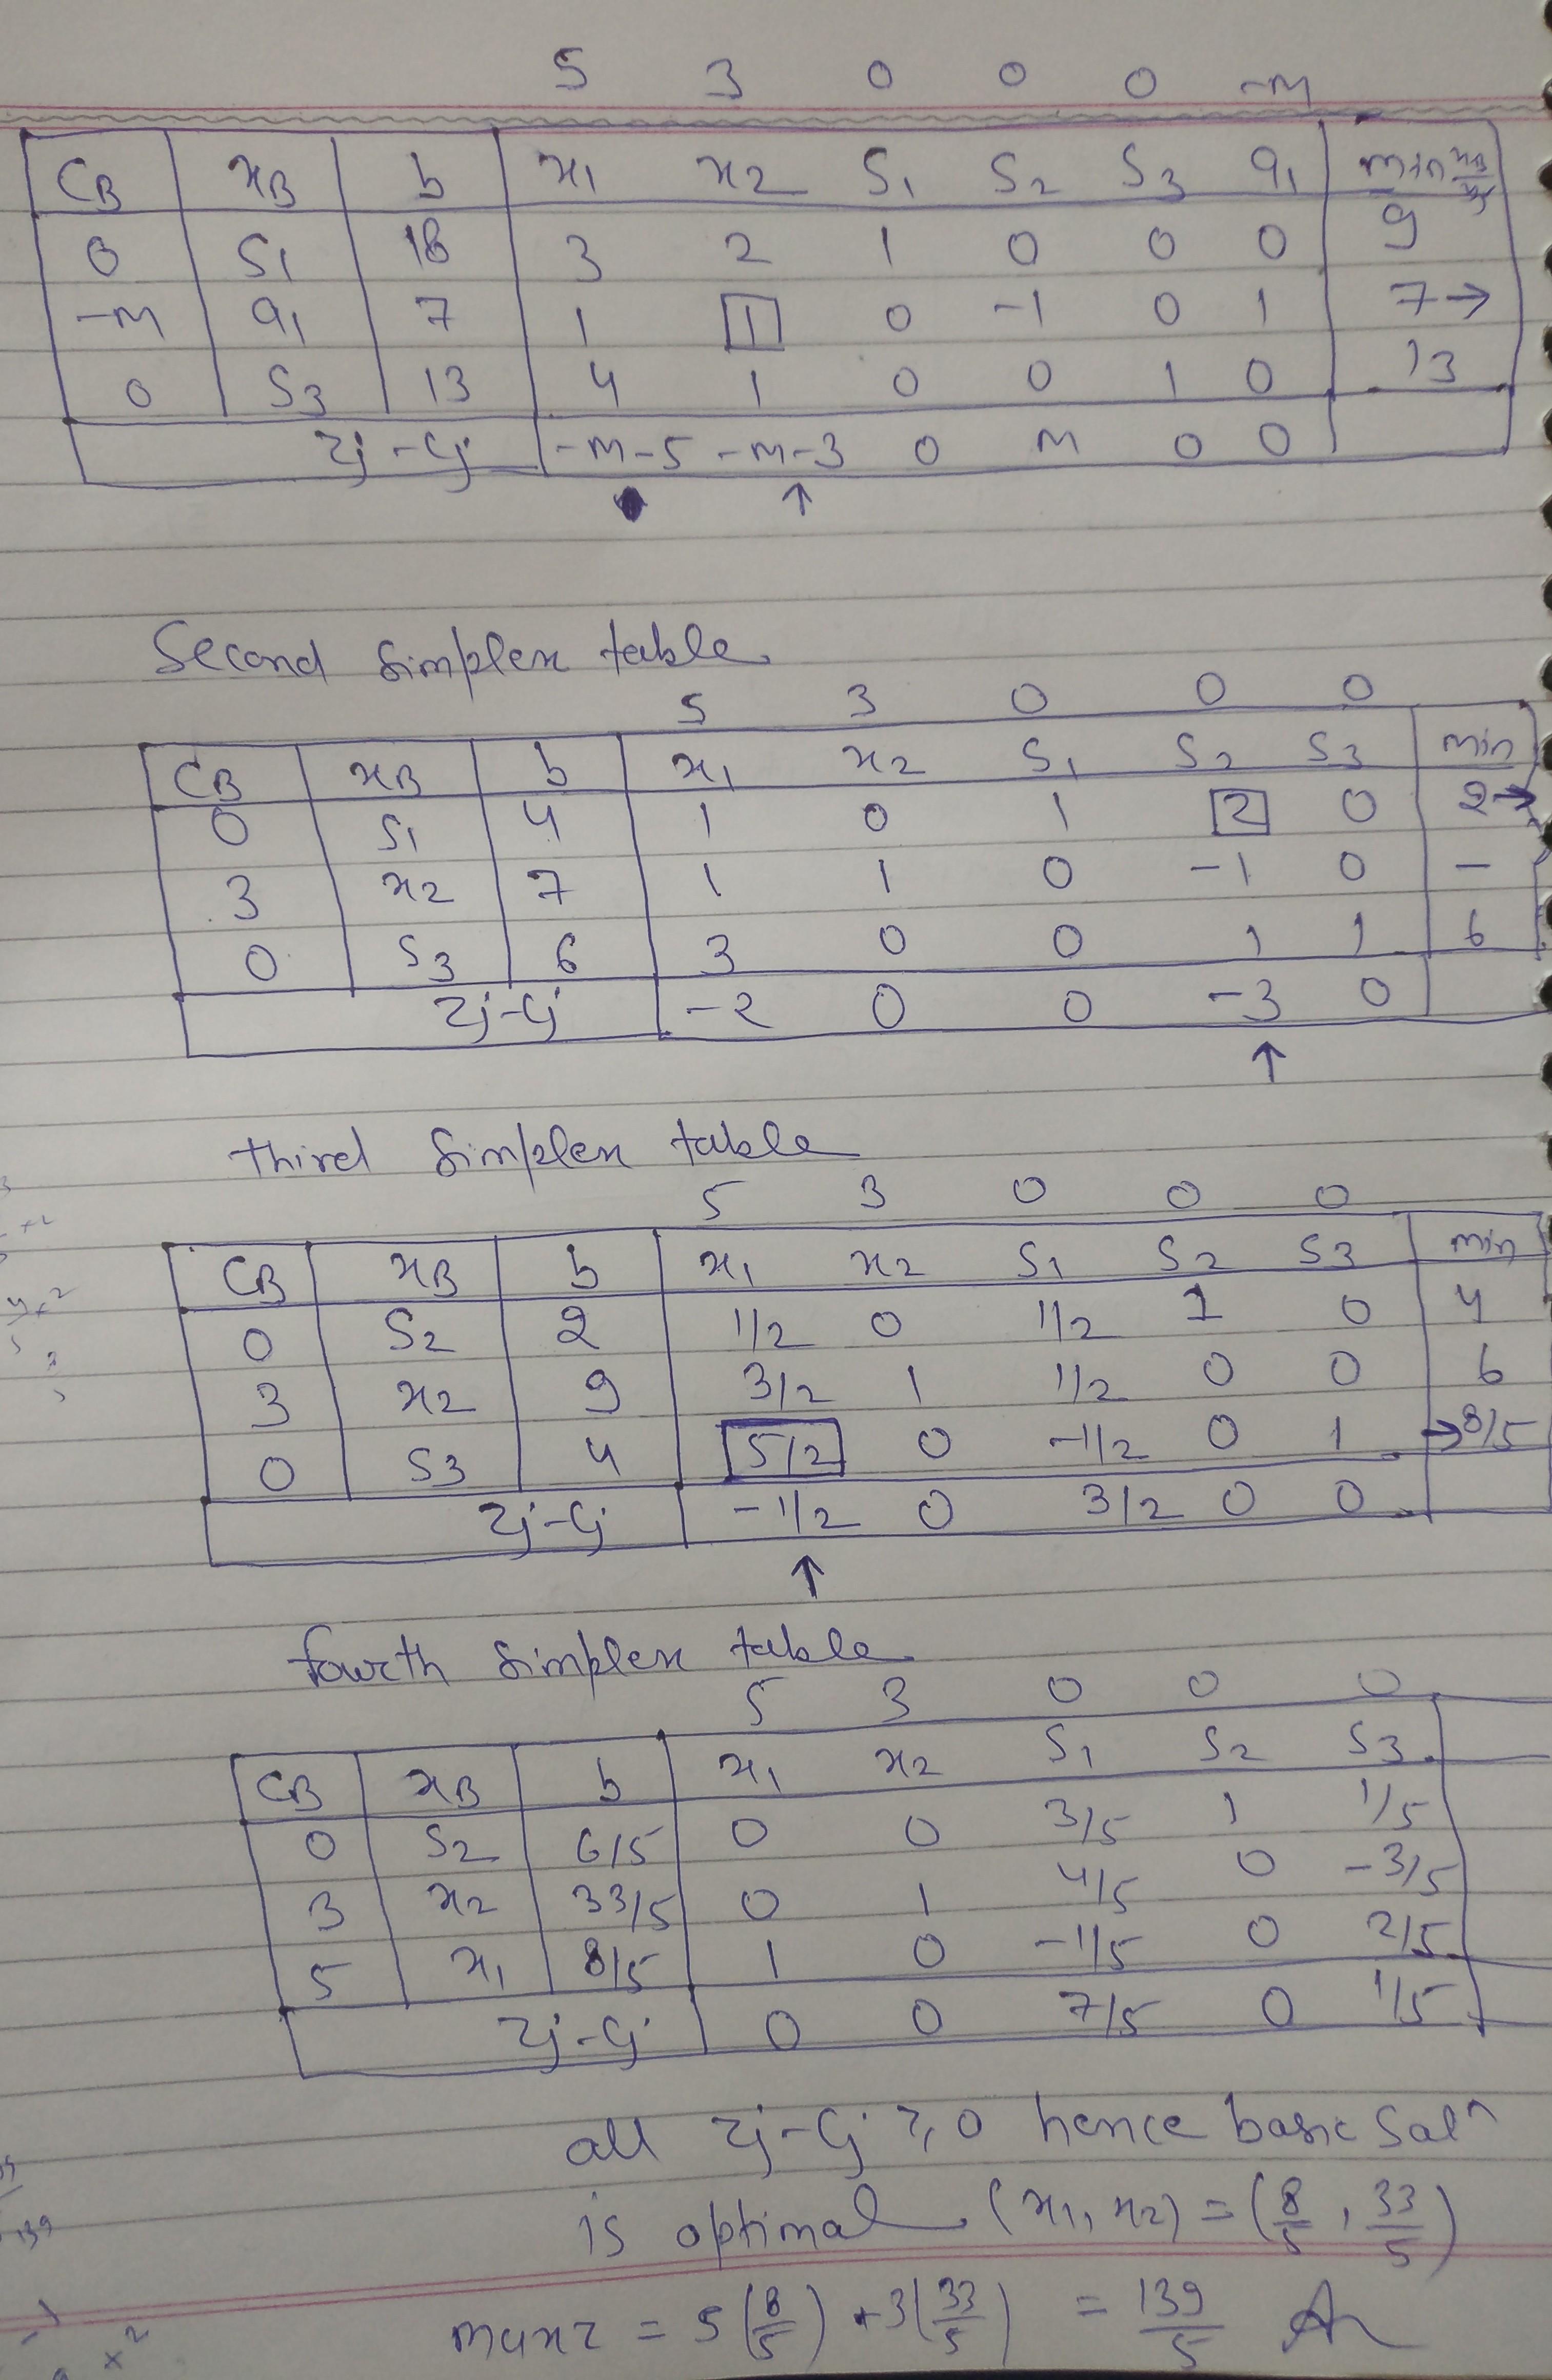 5 3 0 0 0 -M
CB xB b x1 x2 S1 S2 S3 a1 min xB/
0 S1 18 3 2 1 0 0 0 9
-M a1 7 1 1 0 -1 0 1 7→
0 S3 13 4 1 0 0 1 0 13
Zj-Cj -M-5 -M-3 0 M 0 0
↑
Second simplex table
5 3 0 0 0
CB xB b x1 x2 S1 S2 S3 min
0 S1 4 1 0 1 2 0 2→
3 x2 7 1 1 0 -1 0 -
0 S3 6 3 0 0 1 1 6
Zj-Cj -2 0 0 -3 0
↑
third simplex table
5 3 0 0 0
CB xB b x1 x2 S1 S2 S3 min
0 S2 2 1/2 0 1/2 1 0 4
3 x2 9 3/2 1 1/2 0 0 6
0 S3 4 5/2 0 -1/2 0 1 →8/5
Zj-Cj -1/2 0 3/2 0 0
↑
fourth simplex table
5 3 0 0 0
CB xB b x1 x2 S1 S2 S3
0 S2 6/5 0 0 3/5 1 1/5
3 x2 33/5 0 1 4/5 0 -3/5
5 x1 8/5 1 0 -1/5 0 2/5
Zj-Cj 0 0 7/5 0 1/5
all Zj-Cj ≥ 0 hence basic Solⁿ
is optimal (x1, x2) = (8/5, 33/5)
max Z = 5(8/5) + 3(33/5) = 139/5